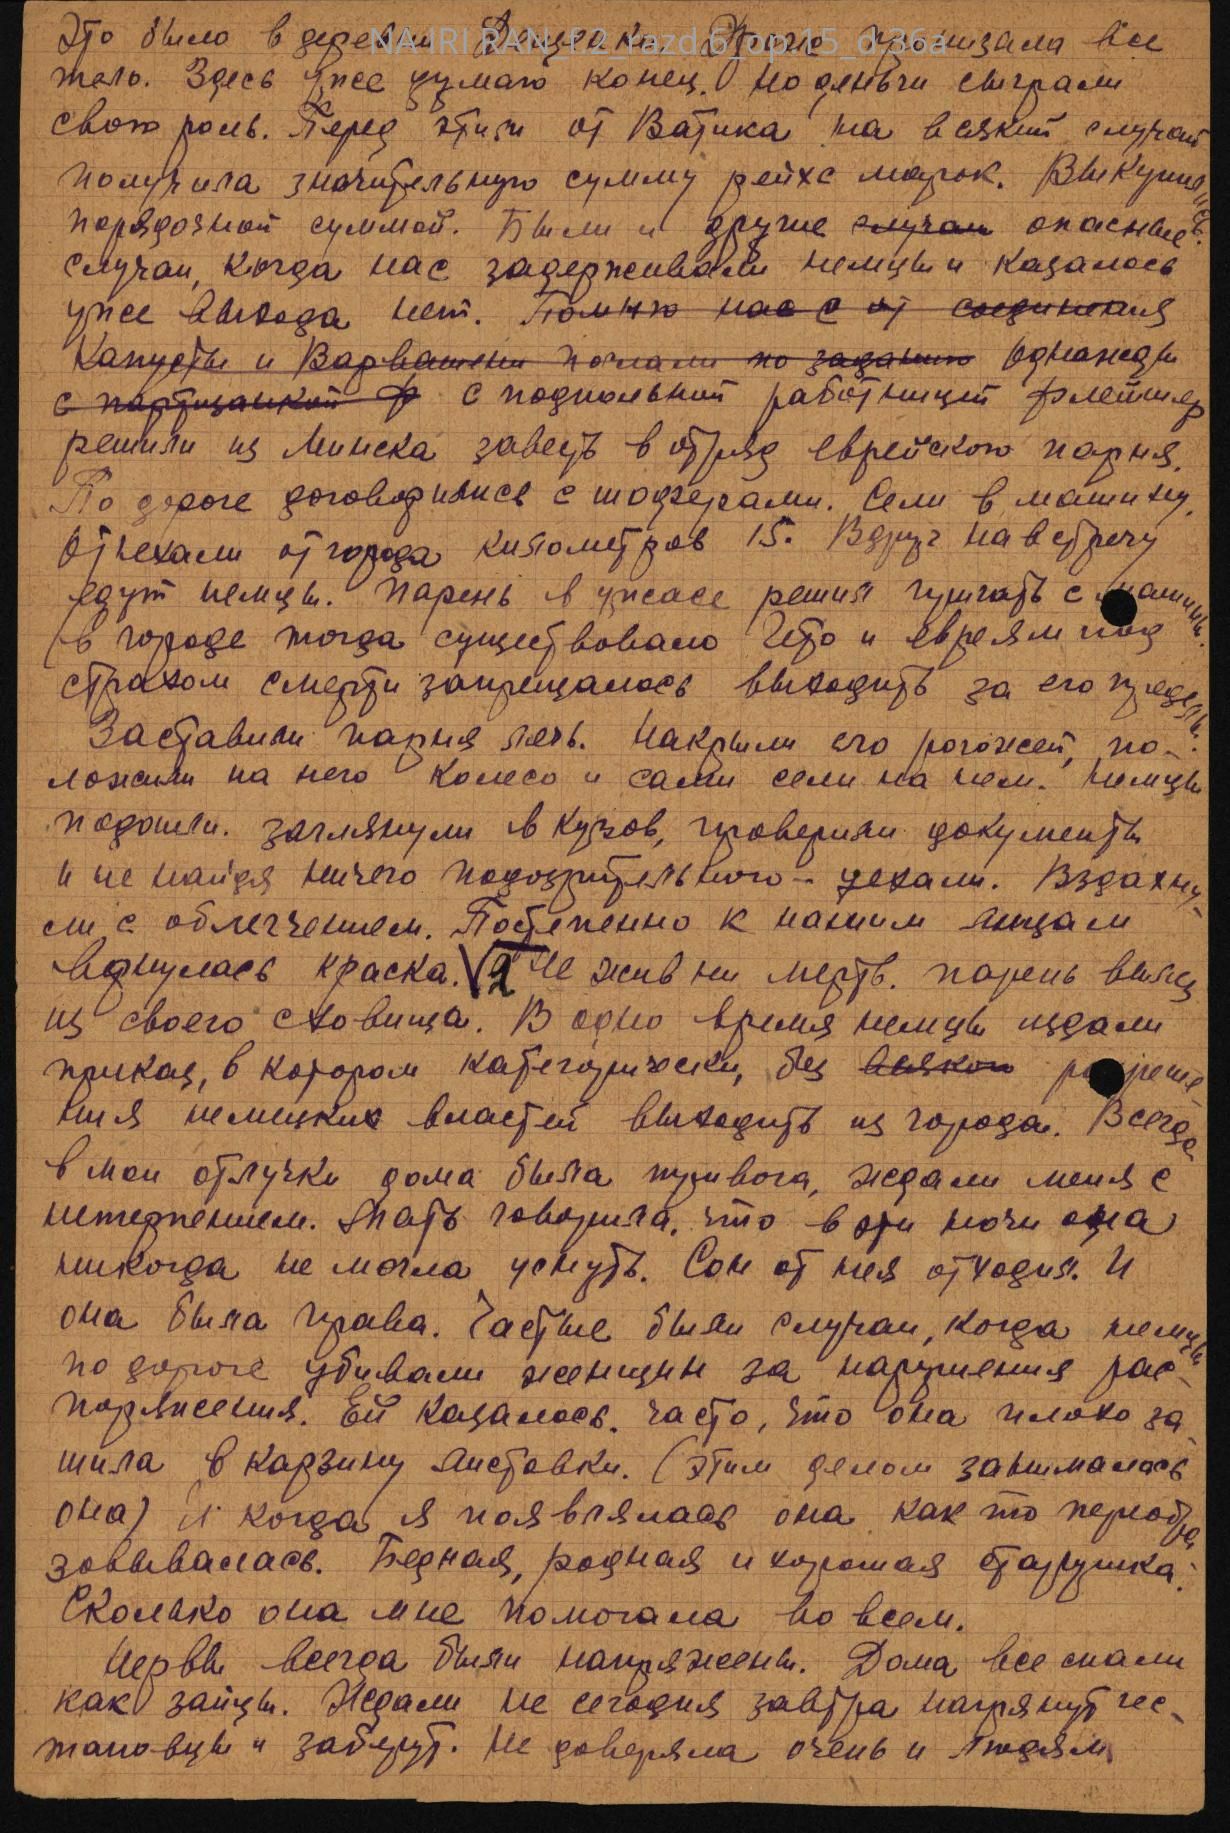 Это было в деревне Дрожь пронизала все
NA IRI RAN_f.2_razd.6_op.15_d.36a
тело. Здесь уже думаю конец. Но деньги сыграли
свою роль. Перед этим от Ватика на всякий случай
получила значительную сумму рейхс марок. Выкупились
порядочной суммой. Были и другие случаи опасные
случаи, когда нас задерживали немцы и казалось
уже выхода нет. Помню нас с от соединения
Капусты и Варвашени послали по заданию Однажды
с партизанкой Ф с подпольной работницей Флейшер
решили из Минска завезть в отряд еврейского парня.
По дороге договорились с шоферами. Сели в машину.
Отъехали от города километров 15. Вдруг на встречу
едут немцы. Парень в ужасе решил прыгать с машины.
(в городе тогда существовало Гето и евреям под
страхом смерти запрещалось выходить за его пределы.
Заставили парня лечь. Накрыли его рогожей, по-
ложили на него колесо и сами сели на нем. Немцы
подошли. заглянули в кузов, проверили документы
и не найдя ничего подозрительного - уехали. Вздохну-
ли с облегчением. Постепенно к нашим лицам
вернулась краска. 2 Не жив ни мертв. парень вылез
из своего сховища. В одно время немцы издали
приказ, в котором категорически, без всякого разреше-
ния немецких властей выходить из города. Всегда
в мои отлучки дома была тривога, ждали меня с
нетерпением. Мать говорила, что в эти ночи она
никогда не могла уснуть. Сон от нея отходил. И
она была права. Частые были случаи, когда немцы
по дороге убивали женщин за нарушения рас-
поряжения. Ей казалось. часто, что она плохо за-
шила в карзину листовки. (этим делом занималась
она) И когда я появлялась она как то переобра-
зовывалась. Бедная, родная и хорошая старушка.
Сколько она мне помогала во всем.
Нервы всегда были напряжены. Дома все спали
как зайцы. Ждали не сегодня завтра нагрянут гес-
таповцы и заберут. Не доверяла очень и людям